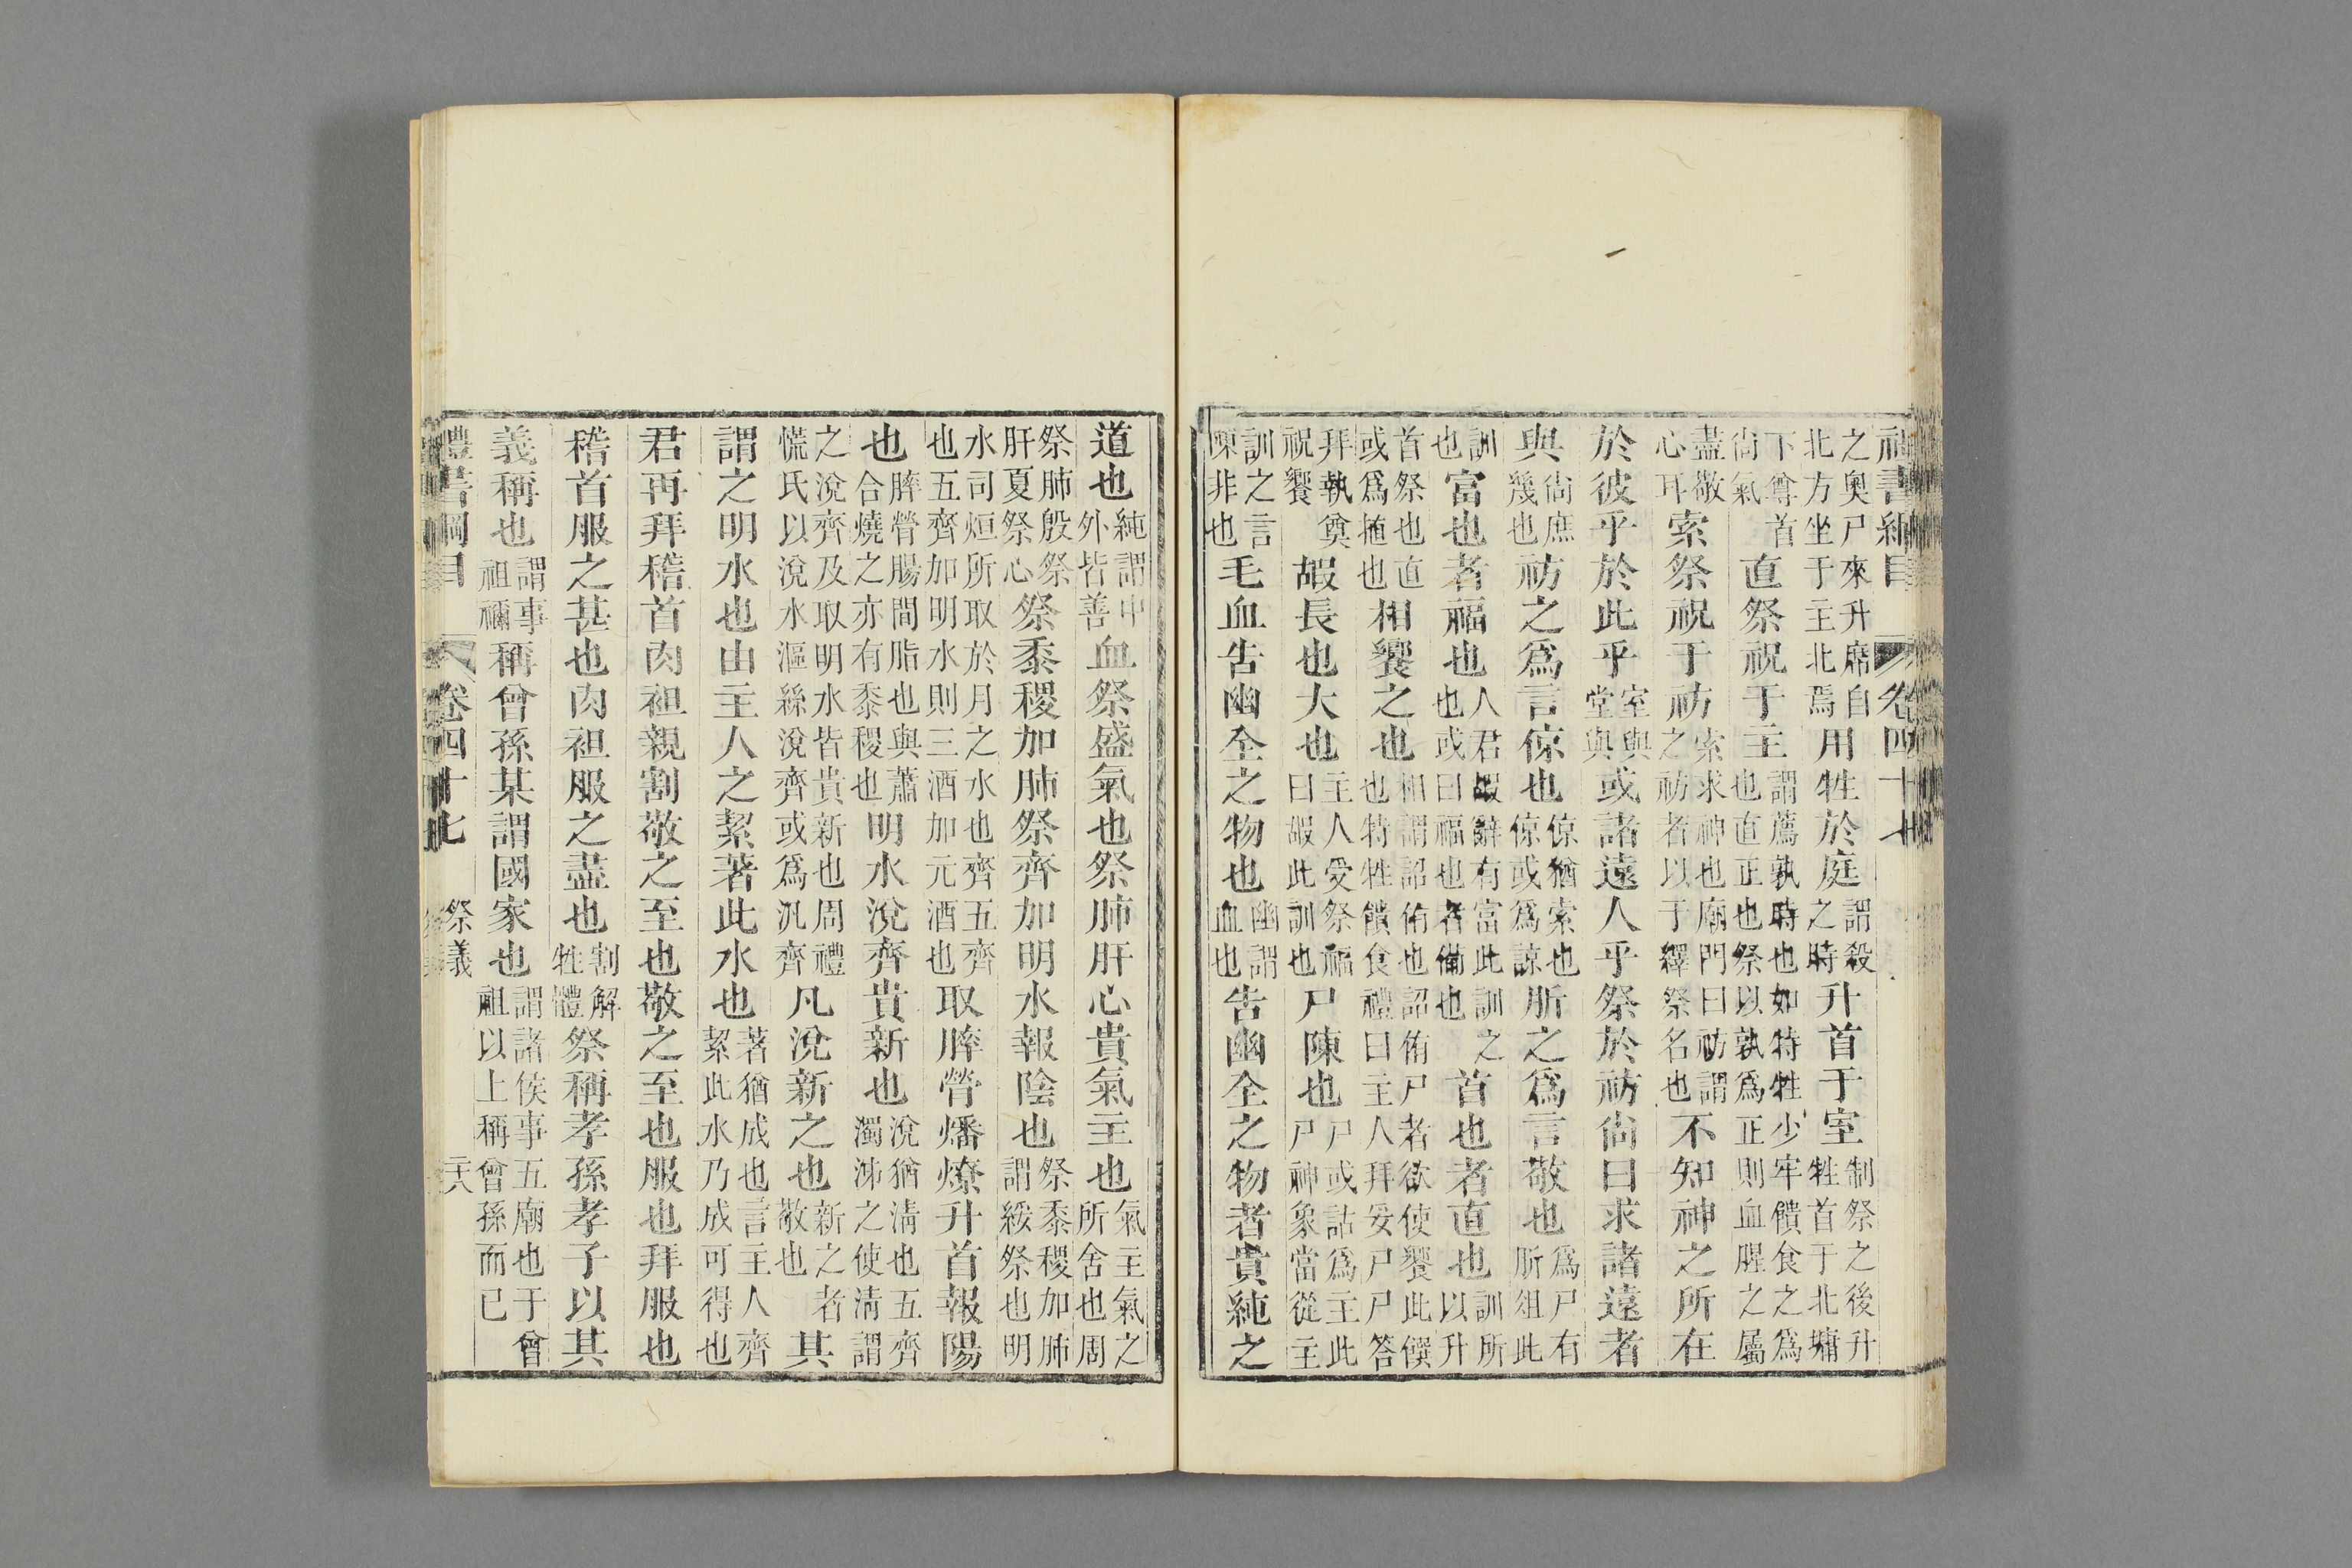 禮書綱目 卷四十七
之奧尸來升席自北方坐于主北焉用牲於庭謂殺之時升首于室制祭之後升牲首于北墉
下尊首尚氣直祭祝于主謂薦孰時也如特牲少牢饋食之爲也直正也祭以孰爲正則血腥之屬
盡敬心耳索祭祝于祊索求神也廟門曰祊謂之祊者以于繹祭名也不知神之所在
於彼乎於此乎室與堂與或諸遠人乎祭於祊尚曰求諸遠者
與尚庶幾也祊之爲言倞也倞猶索也倞或爲諒肵之爲言敬也爲尸有肵俎此
訓也富也者福也人君嘏辭有富此訓之也或曰福也者備也首也者直也訓所以升
首祭也直或爲犆也相饗之也相謂詔侑也詔侑尸者欲使饗此饌也特牲饋食禮曰主人拜妥尸尸答
拜執奠祝饗嘏長也大也主人受祭福曰嘏此訓也尸陳也尸或詁爲主此尸神象當從主
訓之言陳非也毛血告幽全之物也幽謂血也告幽全之物者貴純之
道也純謂中外皆善血祭盛氣也祭肺肝心貴氣主也氣主氣之所舍也周
祭肺殷祭肝夏祭心祭黍稷加肺祭齊加明水報陰也祭黍稷加肺謂綏祭也明
水司烜所取於月之水也齊五齊也五齊加明水則三酒加元酒也取膟膋燔燎升首報陽
也膟膋腸間脂也與蕭合燒之亦有黍稷也明水涗齊貴新也涗猶清也五齊濁泲之使清謂
之涗齊及取明水皆貴新也周禮㡛氏以涗水漚絲涗齊或爲汎齊凡涗新之也新之者敬也其
謂之明水也由主人之絜著此水也著猶成也言主人齊絜此水乃成可得也
君再拜稽首肉袒親割敬之至也敬之至也服也拜服也
稽首服之甚也肉袒服之盡也割解牲體祭稱孝孫孝子以其
義稱也謂事祖禰稱曾孫某謂國家也謂諸侯事五廟也于曾祖以上稱曾孫而已
禮書綱目 卷四十七 祭義 二六